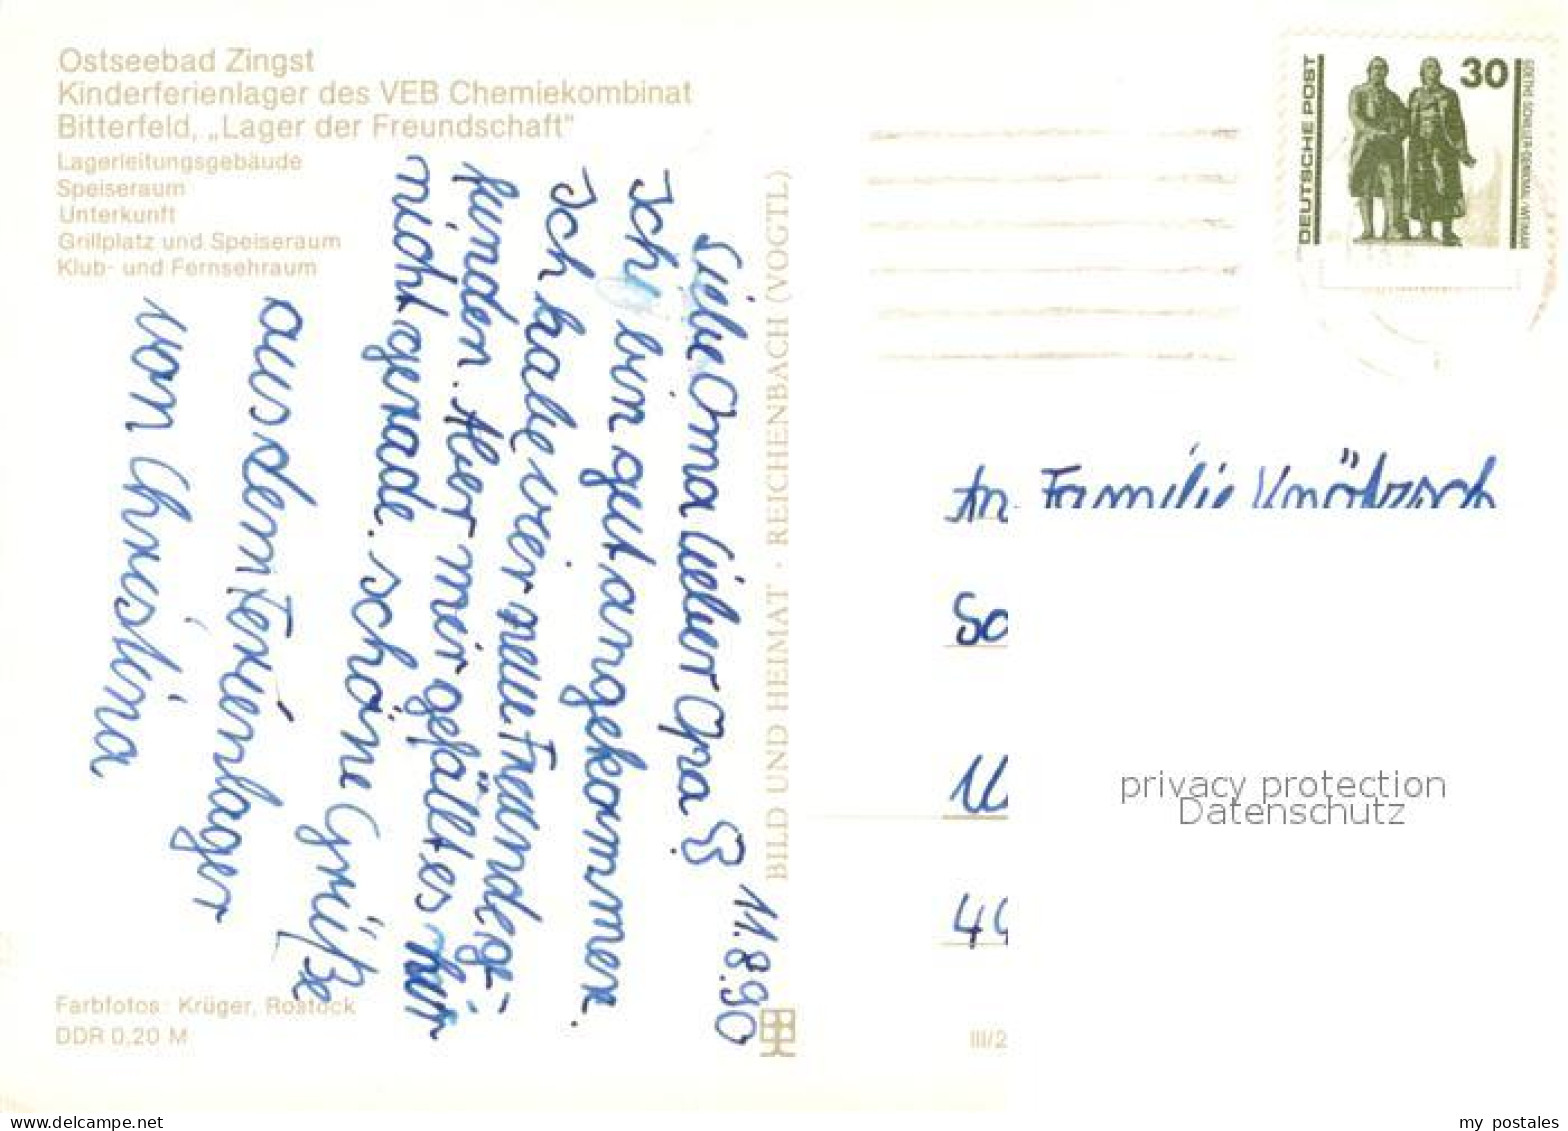 Ostseebad Zingst
Kinderferienlager des VEB Chemiekombinat
Bitterfeld, „Lager der Freundschaft"
Lagerleitungsgebäude
Speiseraum
Unterkunft
Grillplatz und Speiseraum
Klub- und Fernsehraum
11.8.90
Liebe Oma lieber Opa
Ich bin gut angekommen.
Ich habe vier neue Freunde ge-
funden. Aber mir gefällt es hir
nicht gerade. schöne Grüße
aus dem Ferienlager
von Christina
Farbfotos: Krüger, Rostock
DDR 0,20 M
BILD UND HEIMAT · REICHENBACH (VOGTL)
III/2
DEUTSCHE POST
30
GOETHE-SCHILLER-DENKMAL/WEIMAR
An Familie
privacy protection
Datenschutz
my postales